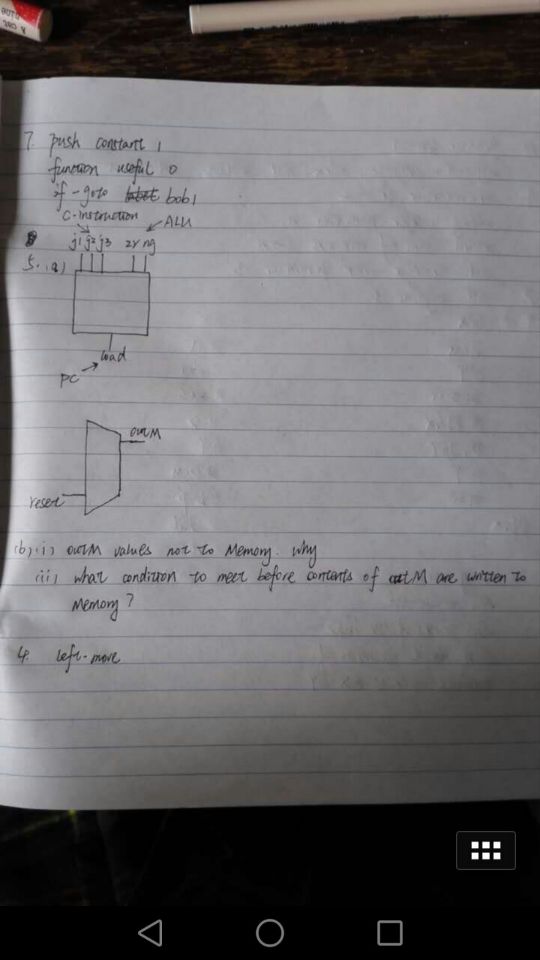 7. push constant 1
function useful 0
if-goto bob1
C-instruction
ALU
j1 j2 j3 zr ng
5. (a)
load
PC
outM
reset
(b) (i) outM values not to Memory. why
(ii) what condition to meet before contents of outM are written to
Memory?
4. left-move